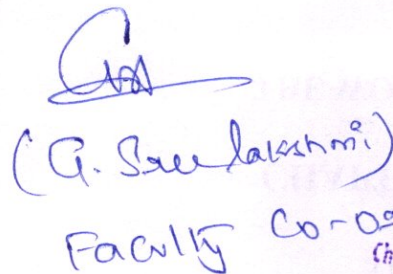 (G. Sreelakshmi)
Faculty Co-o
Ch